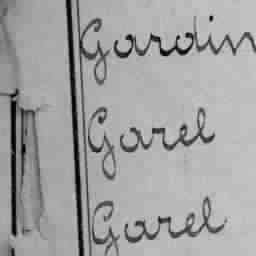 Gardin
Garel
Garel